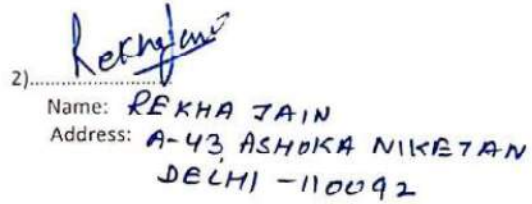 Rekha Jain
2)..............................
Name: REKHA JAIN
Address: A-43 ASHOKA NIKETAN
DELHI -110092